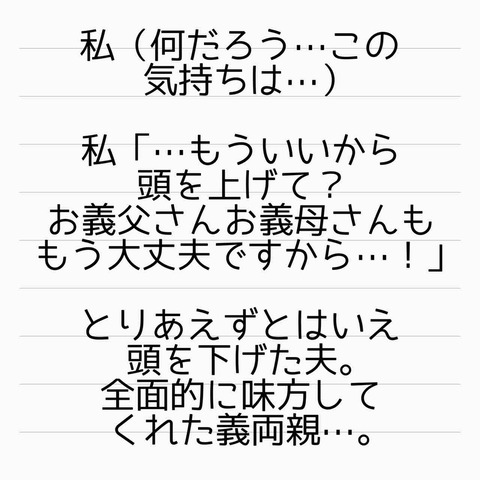 私（何だろう…この
気持ちは…）
私「…もういいから
頭を上げて？
お義父さんお義母さんも
もう大丈夫ですから…！」
とりあえずとはいえ
頭を下げた夫。
全面的に味方して
くれた義両親…。